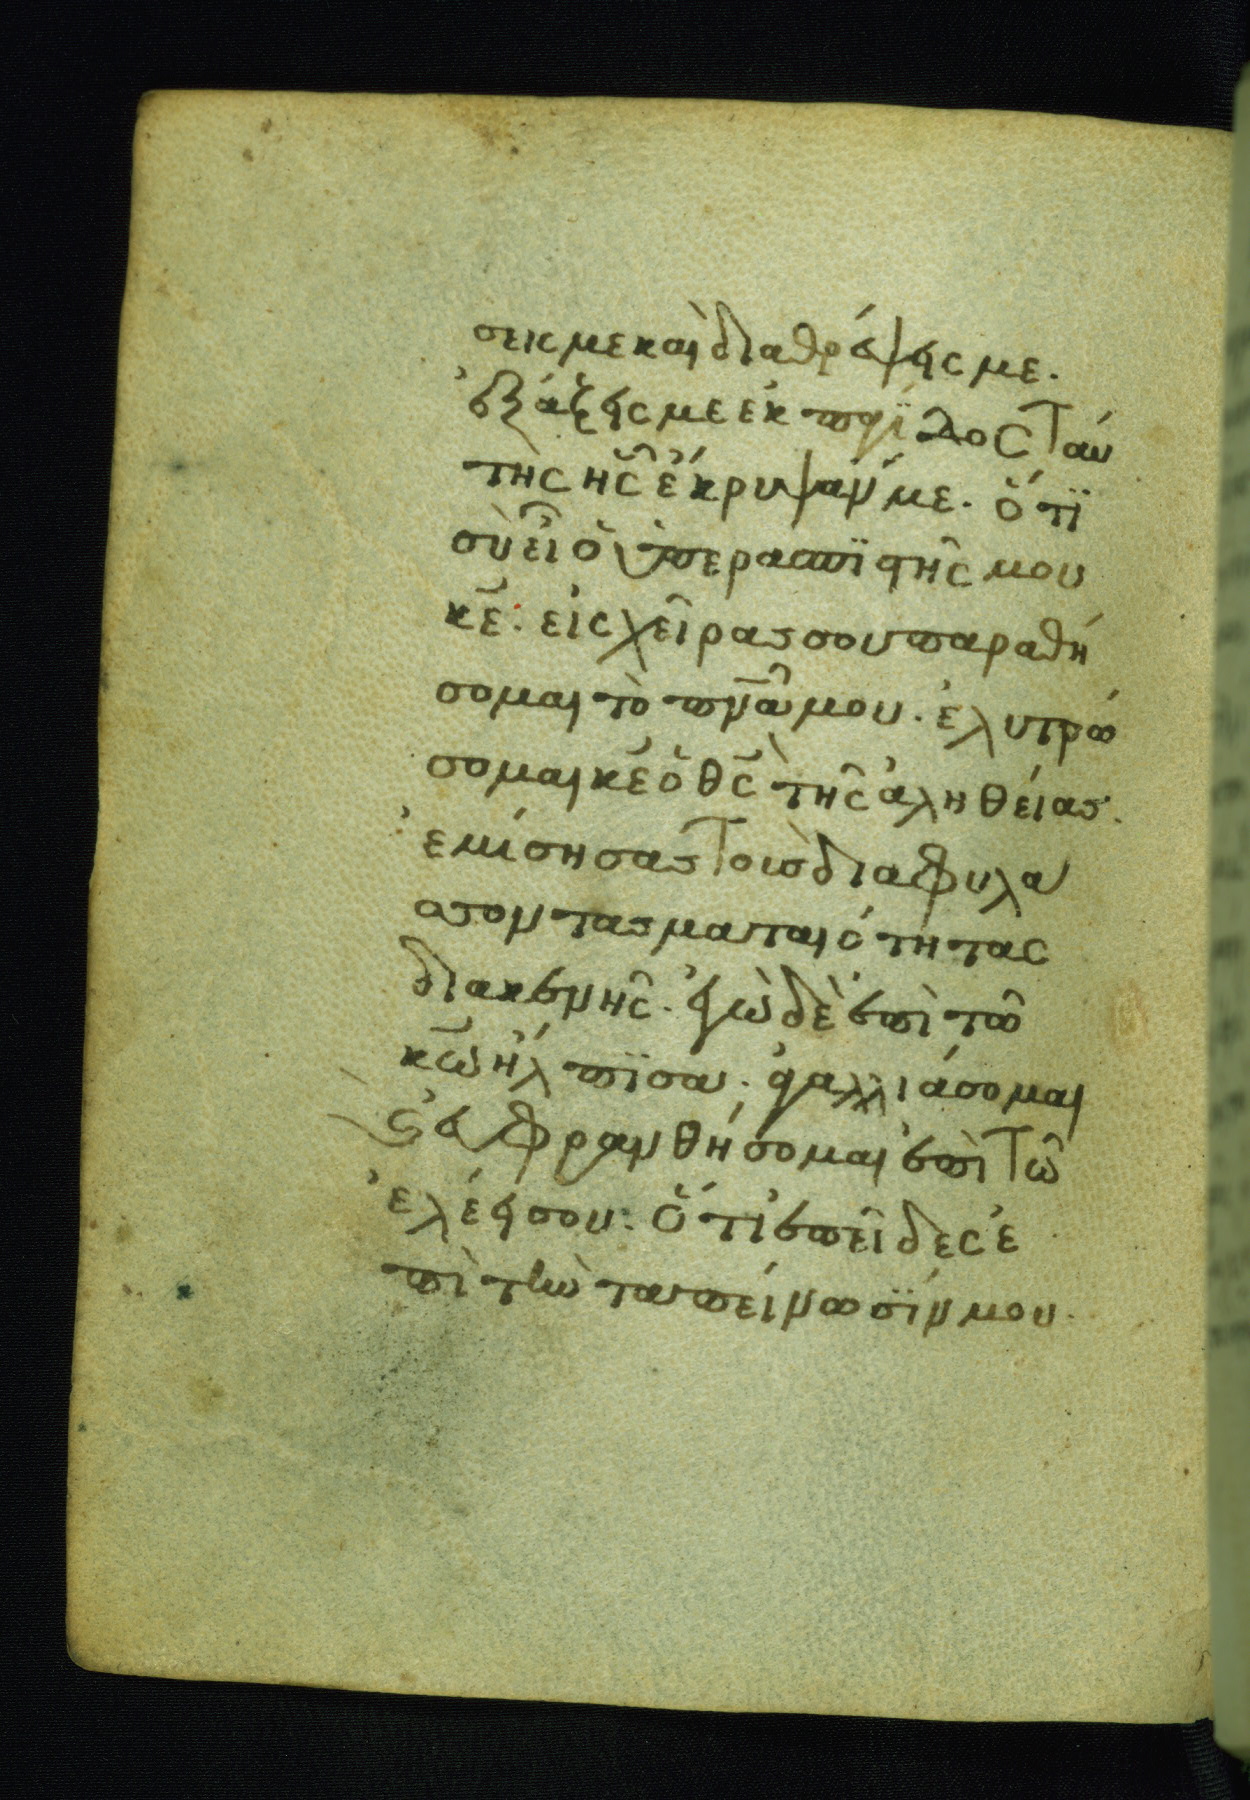 σεις με καὶ διαθρέψης με.
ἐξάξης με ἐκ παγΐδος ταύ
της ἧς ἔκρυψάν με. ὅτϊ
σὺ εἶ ὁ ὑπερασπϊστῆς μου
κε̄: εἰς χεῖρας σου παραθή
σομαι τὸ πνᾶ μου. ἐλυτρώ
σομαι κε̄ ὁ θς̄ τῆς ἀληθείας.
ἐμίσησας τοὺς διαφυλα
σσοντας ματαιότητας
διακενῆς. ἐγὼ δὲ ἐπὶ τῶ
κω̄ ἤλπϊσα. ἀγαλλιάσομαι
ϗ εὐφρανθήσομαι ἐπὶ τῶ
ἐλέει σου: ὅτι ἐπεῖδες ἐ
πὶ τὴν ταπείνωσϊν μου.